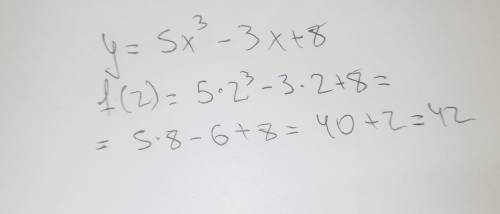 y = 5x³ - 3x + 8
f(2) = 5·2³ - 3·2 + 8 =
= 5·8 - 6 + 8 = 40 + 2 = 42